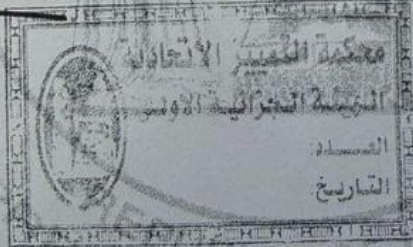 محكمة التمييز الاتحادية
الهيئة الجزائية الاولى
العدد:
التاريخ: